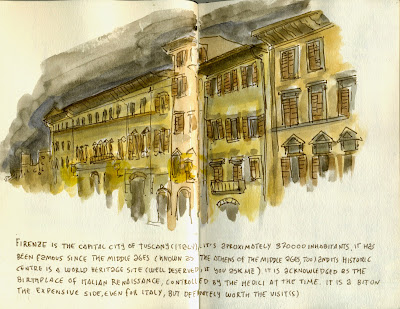 FIRENZE IS THE CAPITAL CITY OF TUSCANY (ITALY), IT'S APROXIMATELY 370000 INHABITANTS, IT HAS
BEEN FAMOUS SINCE THE MIDDLE AGES (KNOWN AS THE ATHENS OF THE MIDDLE AGES, TOO) AND ITS HISTORIC
CENTRE IS A WORLD HERITAGE SITE (WELL DESERVED, IF YOU ASK ME). IT IS ACKNOWLEDGED AS THE
BIRTHPLACE OF ITALIAN RENAISSANCE, CONTROLLED BY THE MEDICI AT THE TIME. IT IS A BIT ON
THE EXPENSIVE SIDE, EVEN FOR ITALY, BUT DEFINITELY WORTH THE VISIT(S)